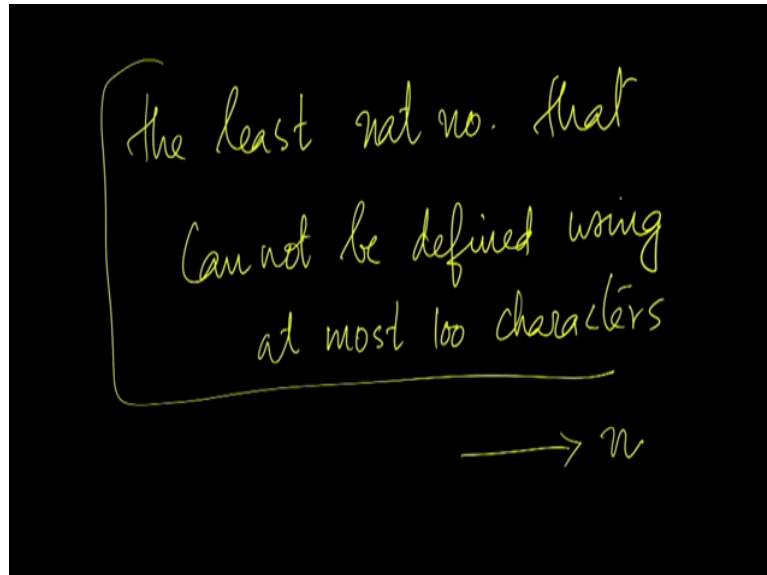 the least nat no. that
Cannot be defined using
at most 100 characters
→ n